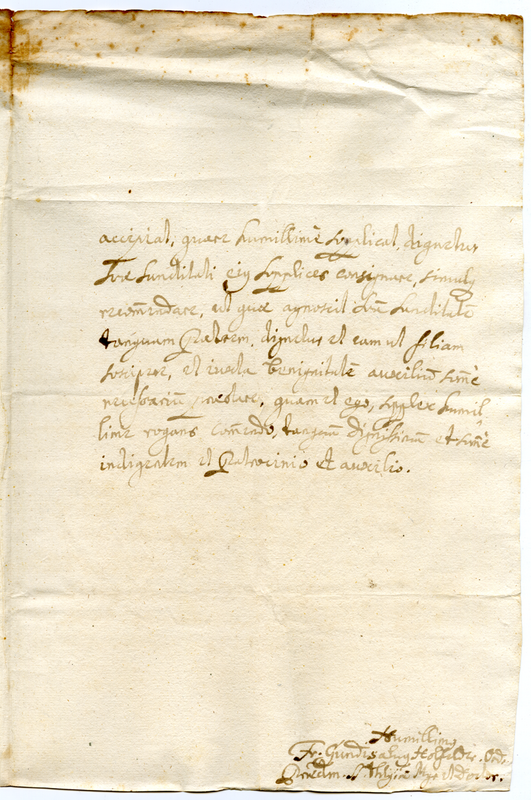 accipiat, quare humillimè supplicat, dignetur
Suae Sanctitati ejus supplices consignare, simulq
recom̄endare, ut quae agnoscit Suā Sanctitatē
tanquam Patrem, dignetur et eam ut filiam
suscipere, et iuxta benignitatē auxiliū sum̄è
necessarium praestare, quam et ego, supplex humil=
lime rogans com̄endo, tanquā et sum̄è
indigentem et Patrocinio et auxilio.
Humillimus
Fr. Gundisalvus Ord.
Praedm. S. Theologiae